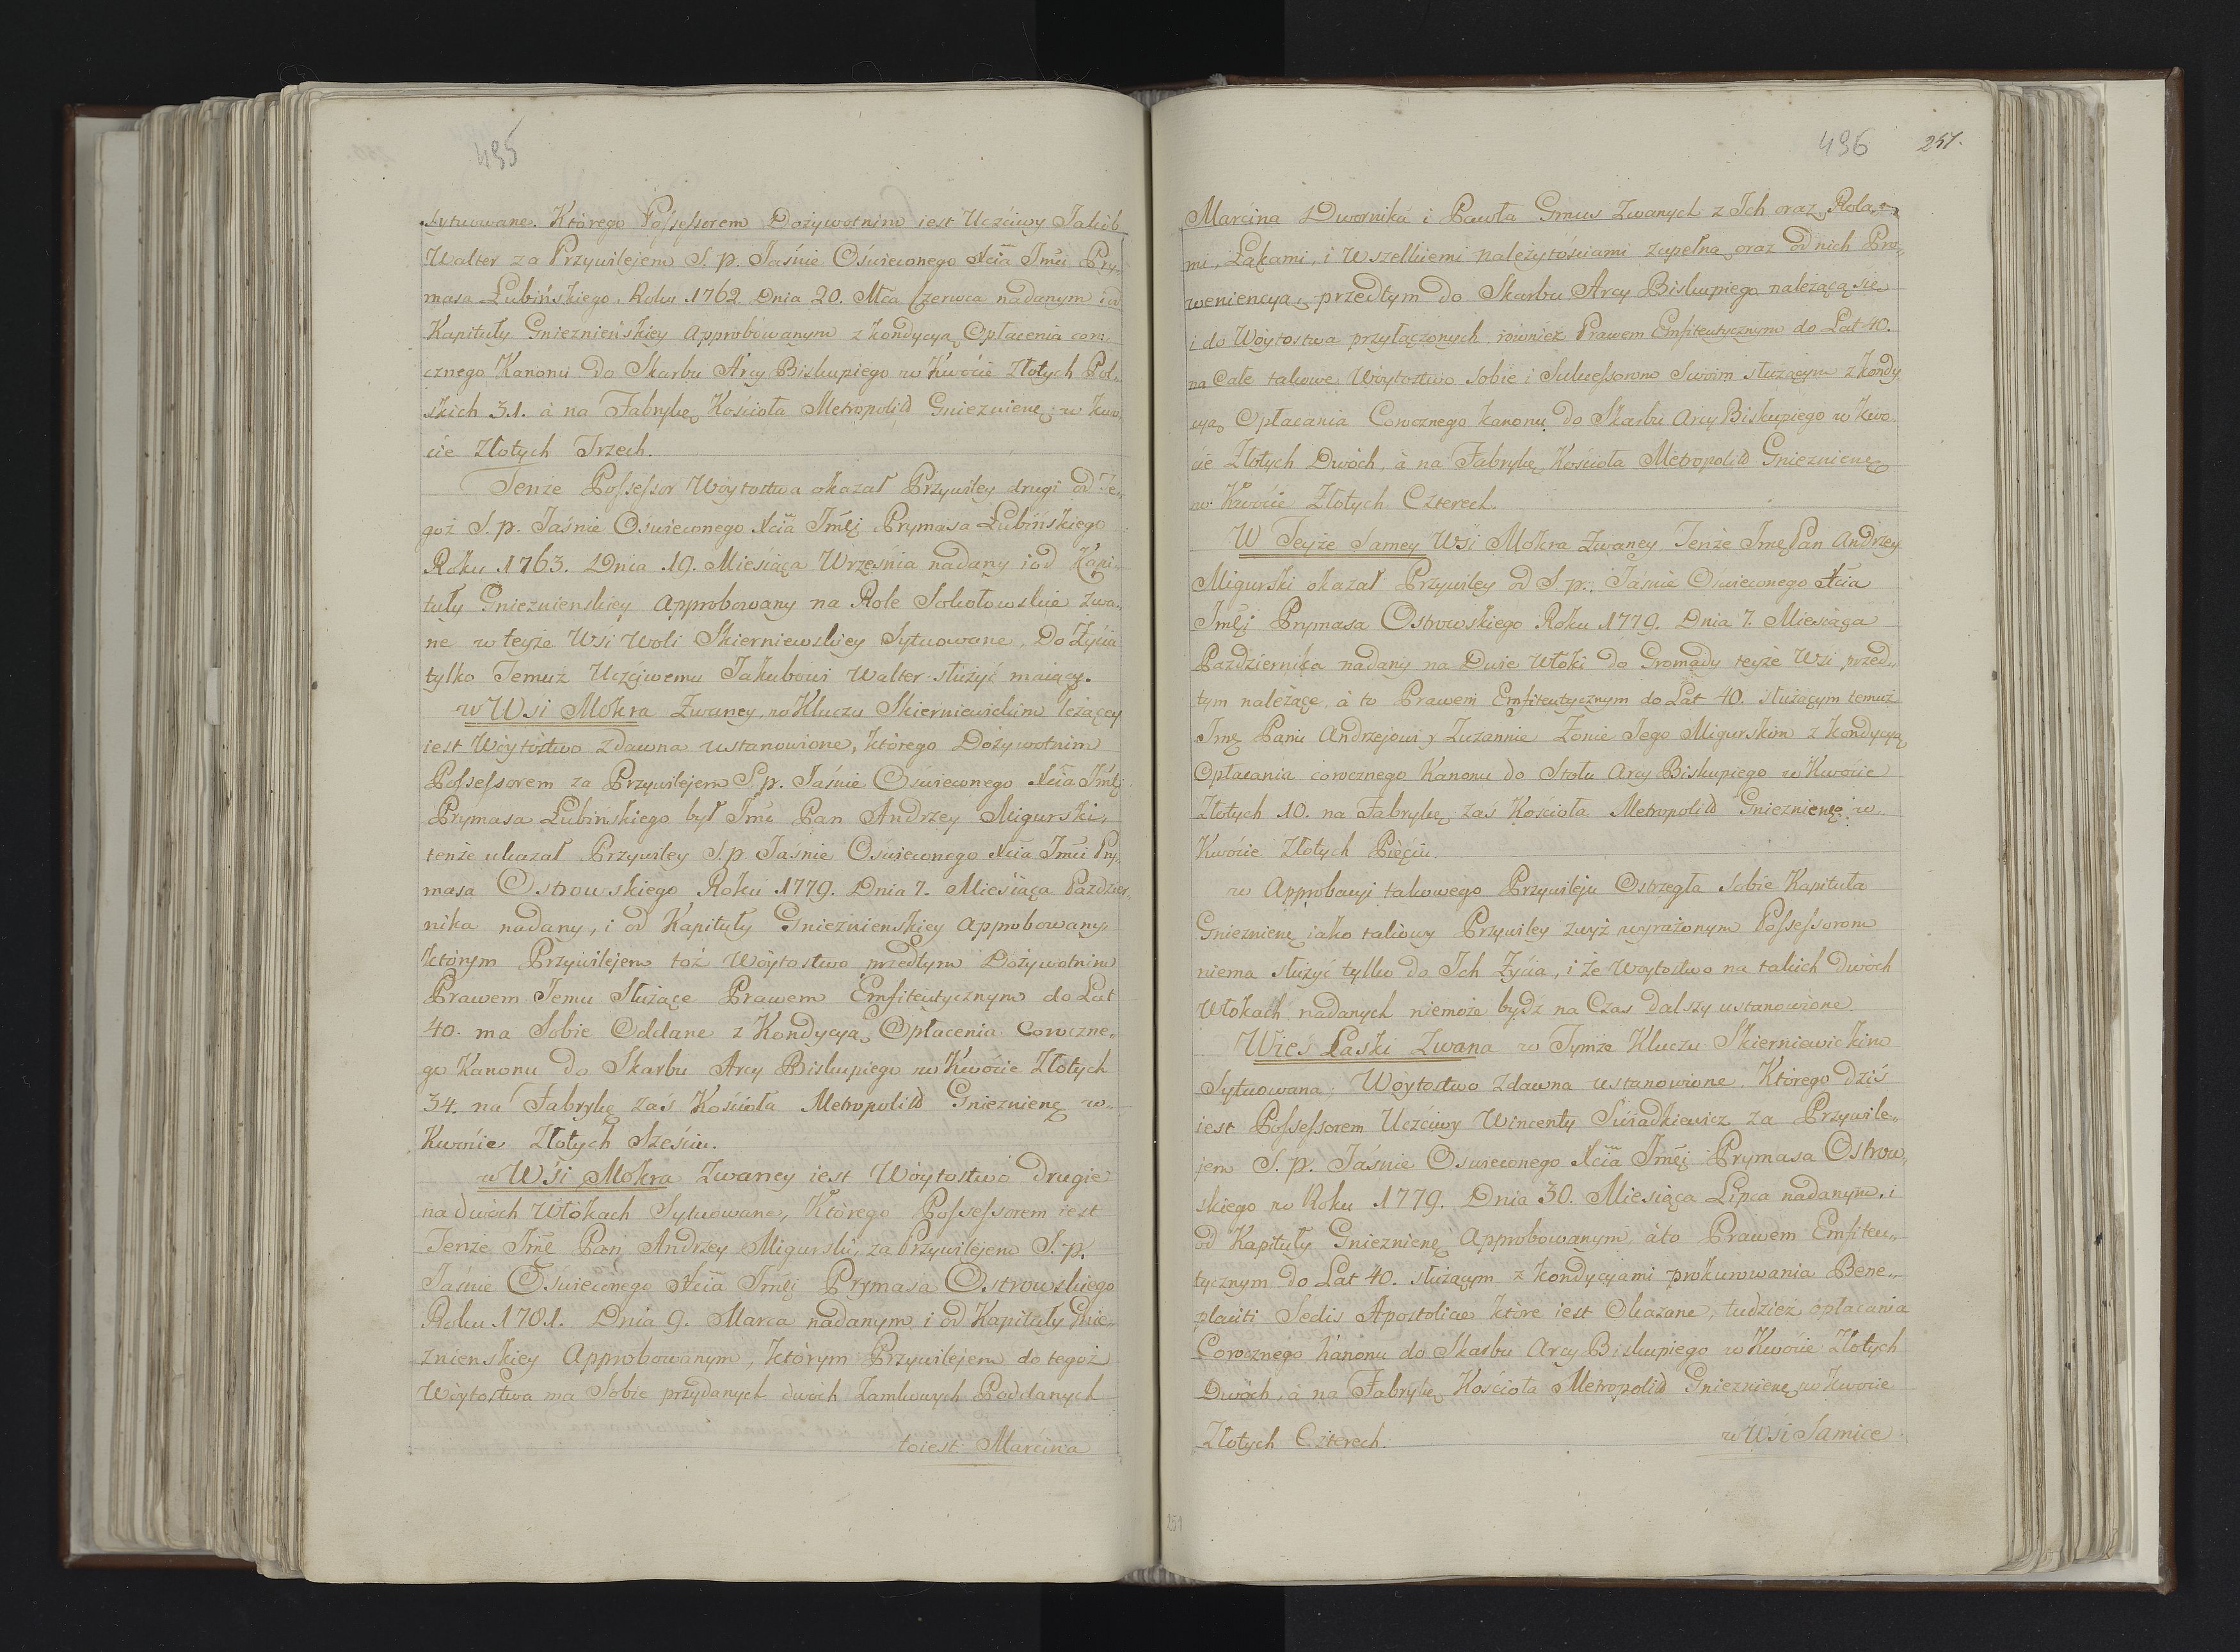 495
sytuowane. Którego Possessorem Dożywotnim iest Uczciwy Jakób
Walter za Przywilejem S. p. Jaśnie Oświeconego Xcia Jmći Pry„
masa Łubińskiego, Roku 1762 Dnia 20. Mca Czerwca nadanym i od
Kapituły Gnieznieńskiey approbowanym z kondycyą Opłacenia coro„
cznego Kanonu do Skarbu Arcy Biskupiego w Kwocie Złotych Pol„
skich 31. à na Fabrykę Kościoła Metropolid Gnieznienę w kwo„
cie Złotych Trzech.
Tenze Possessor Woytostwa okazał Przywiley drugi od Te„
goż S. p. Jaśnie Oświeconego Xcia Jmći Prymasa Łubińskiego
Roku 1763. Dnia 19. Miesiąca Września nadany i od Kapi„
tuły Gnieznienskiey Approbowany na Role Sokołowskie zwa„
ne w teyże Wsi Woli Skierniewskiey Sytuowane, Do Życia
tylko Temuż Uczciwemu Jakubowi Walter służyć maiący.
w Wsi Mokra Zwaney, w Kluczu Skierniewickim leżącey
iest Woytostwo zdawna ustanowione, którego Dożywotnim
Possessorem za Przywilejem S. p. Jaśnie Oświeconego Xcia Jmći
Prymasa Łubinskiego był Jmć Pan Andrzey Migurski,
tenże ukazał Przywiley S. p. Jaśnie Oswieconego Xcia Jmći Pry„
masa Ostrowskiego Roku 1779. Dnia 7. Miesiąca Paździer„
nika nadany, i od Kapituły Gnieznienskiey Approbowany,
którym Przywilejem toż Woytostwo przedtym Dożywotnim
Prawem Jemu Służące Prawem Emfiteutycznym do Lat
40. ma Sobie Oddane z Kondycyą Opłacenia Coroczne„
go Kanonu do Skarbu Arcy Biskupiego w Kwocie Złotych
34. na Fabrykę zaś Kościoła Metropolid Gnieznienę w
Kwocie Złotych Sześciu.
w Wśi Mokra Zwaney iest Woytostwo drugie
na dwóch Włokach Sytuowane, Którego Possessorem iest
Tenże Jmć Pan Andrzey Migurski, za Przywilejem S. p.
Jaśnie Oswieconego Xcia Jmći Prymasa Ostrowskiego
Roku 1781. Dnia 9. Marca nadanym i od Kapituły Gnie„
znienskiey Approbowanym, którym Przywilejem do tegoż
Woytostwa ma Sobie przydanych dwóch Poddanych
toiest Marcina
496 251.
Marcina Dwornika i Pawła Gmus Zwanych z Ich oraz Rola„
mi, Łąkami, i Wszelkiemi należytościami zupełną oraz od nich Pro„
weniencyą, przedtym do Skarbu Arcy Biskupiego należącą się
i do Woytostwa przyłączonych również Prawem Emfiteutycznym do Lat 40.
na Całe takowe Woytostwo Sobie i Sukcessorom Swoim służącym z kondy
cyą Opłacania Corocznego kanonu do Skarbu Arcy Biskupiego w kwo„
cie Złotych Dwóch, à na Fabrykę Kościoła Metropolid Gnieznienę
w Kwocie Złotych Czterech.
W Teyże Samey Wsi Mokra Zwaney Tenże Jmć Pan Andrzey
Migurski okazał Przywiley od S. p. Jaśnie Oswieconego Xcia
Jmći Prymasa Ostrowskiego Roku 1779. Dnia 7. Miesiąca
Pazdziernika nadany na Dwie Włoki do Gromady teyże Wsi przed„
tym należące, à to Prawem Emfiteutycznym do Lat 40. służącym temuż
Jmć Panu Andrzejowi y Zuzannie Zonie Jego Migurskim z Kondycyą
Opłacania corocznego Kanonu do Stołu Arcy Biskupiego w Kwocie
Złotych 10. na Fabrykę zaś Kościoła Metropolid Gnieznienę w
Kwocie Złotych Pięciu.
w Approbacyi takowego Przywileju Ostrzegła Sobie Kapituła
Gnieznienę iako takowy Przywiley zwyż wyrażonym Possessorom
niema służyć tylko do Ich Życia, i że Woytostwo na takich dwóch
Włokach nadanych niemoże bydź na Czas dalszy ustanowione.
Wieś Paski Zwana w Tymże Kluczu Skierniewickim
Sytuowana, Woytostwo zdawna ustanowione. Którego dziś
iest Possessorem Uczciwy Wincenty Świadkiewicz za Przywile„
jem S. p. Jasnie Oswieconego Xcia Jmći Prymasa Ostrow„
skiego w Roku 1779. Dnia 30. Miesiąca Lipca nadanym, i
od Kapituły Gnieznienę Approbowanym, à to Prawem Emfiteu„
tycznym do Lat 40. służącym z kondycyami prokurowania Bene„
placiti Sedis Apostolicae które iest Okazane, tudzież opłacania
Corocznego kanonu do Skarbu Arcy Biskupiego w Kwocie Złotych
Dwóch, à na Fabrykę Kościoła Metropolid Gnieznienę w kwocie
Złotych Czterech.
w Wśi Samice
251